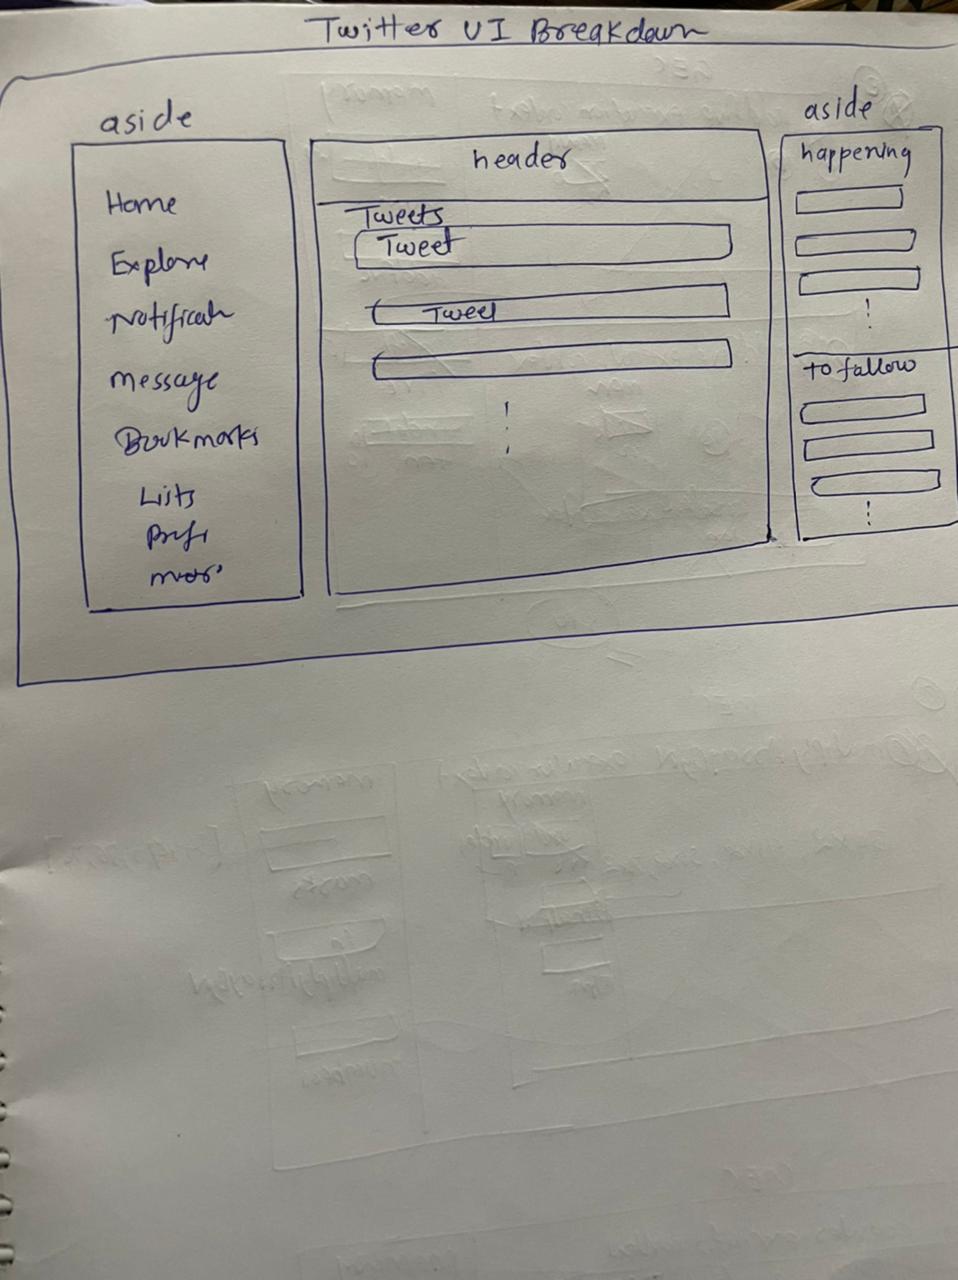 Twitter UI Breakdown
aside
Home
Explore
Message
Bookmarks
Lists
header
Tweets
Tweet
Tweet
aside
happening
to follow